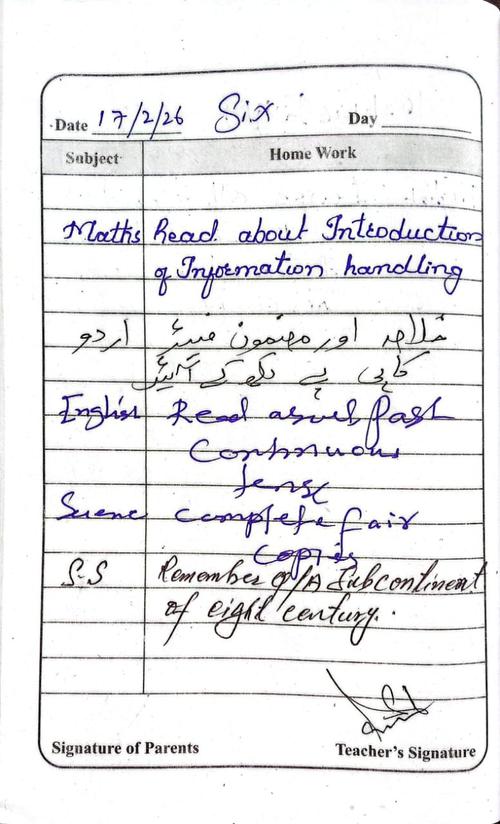 Date 17/2/26 Six Day
Subject Home Work
Maths Read about Introduction
of Information handling
اردو خلاصہ اور مضمون فیئر
کاپی پے لکھ کے آئیں
English Read about Past
Continuous
tense
Science Complete fair
copies
S.S Remember Q/A Subcontinent
of eight century.
Signature of Parents Teacher's Signature